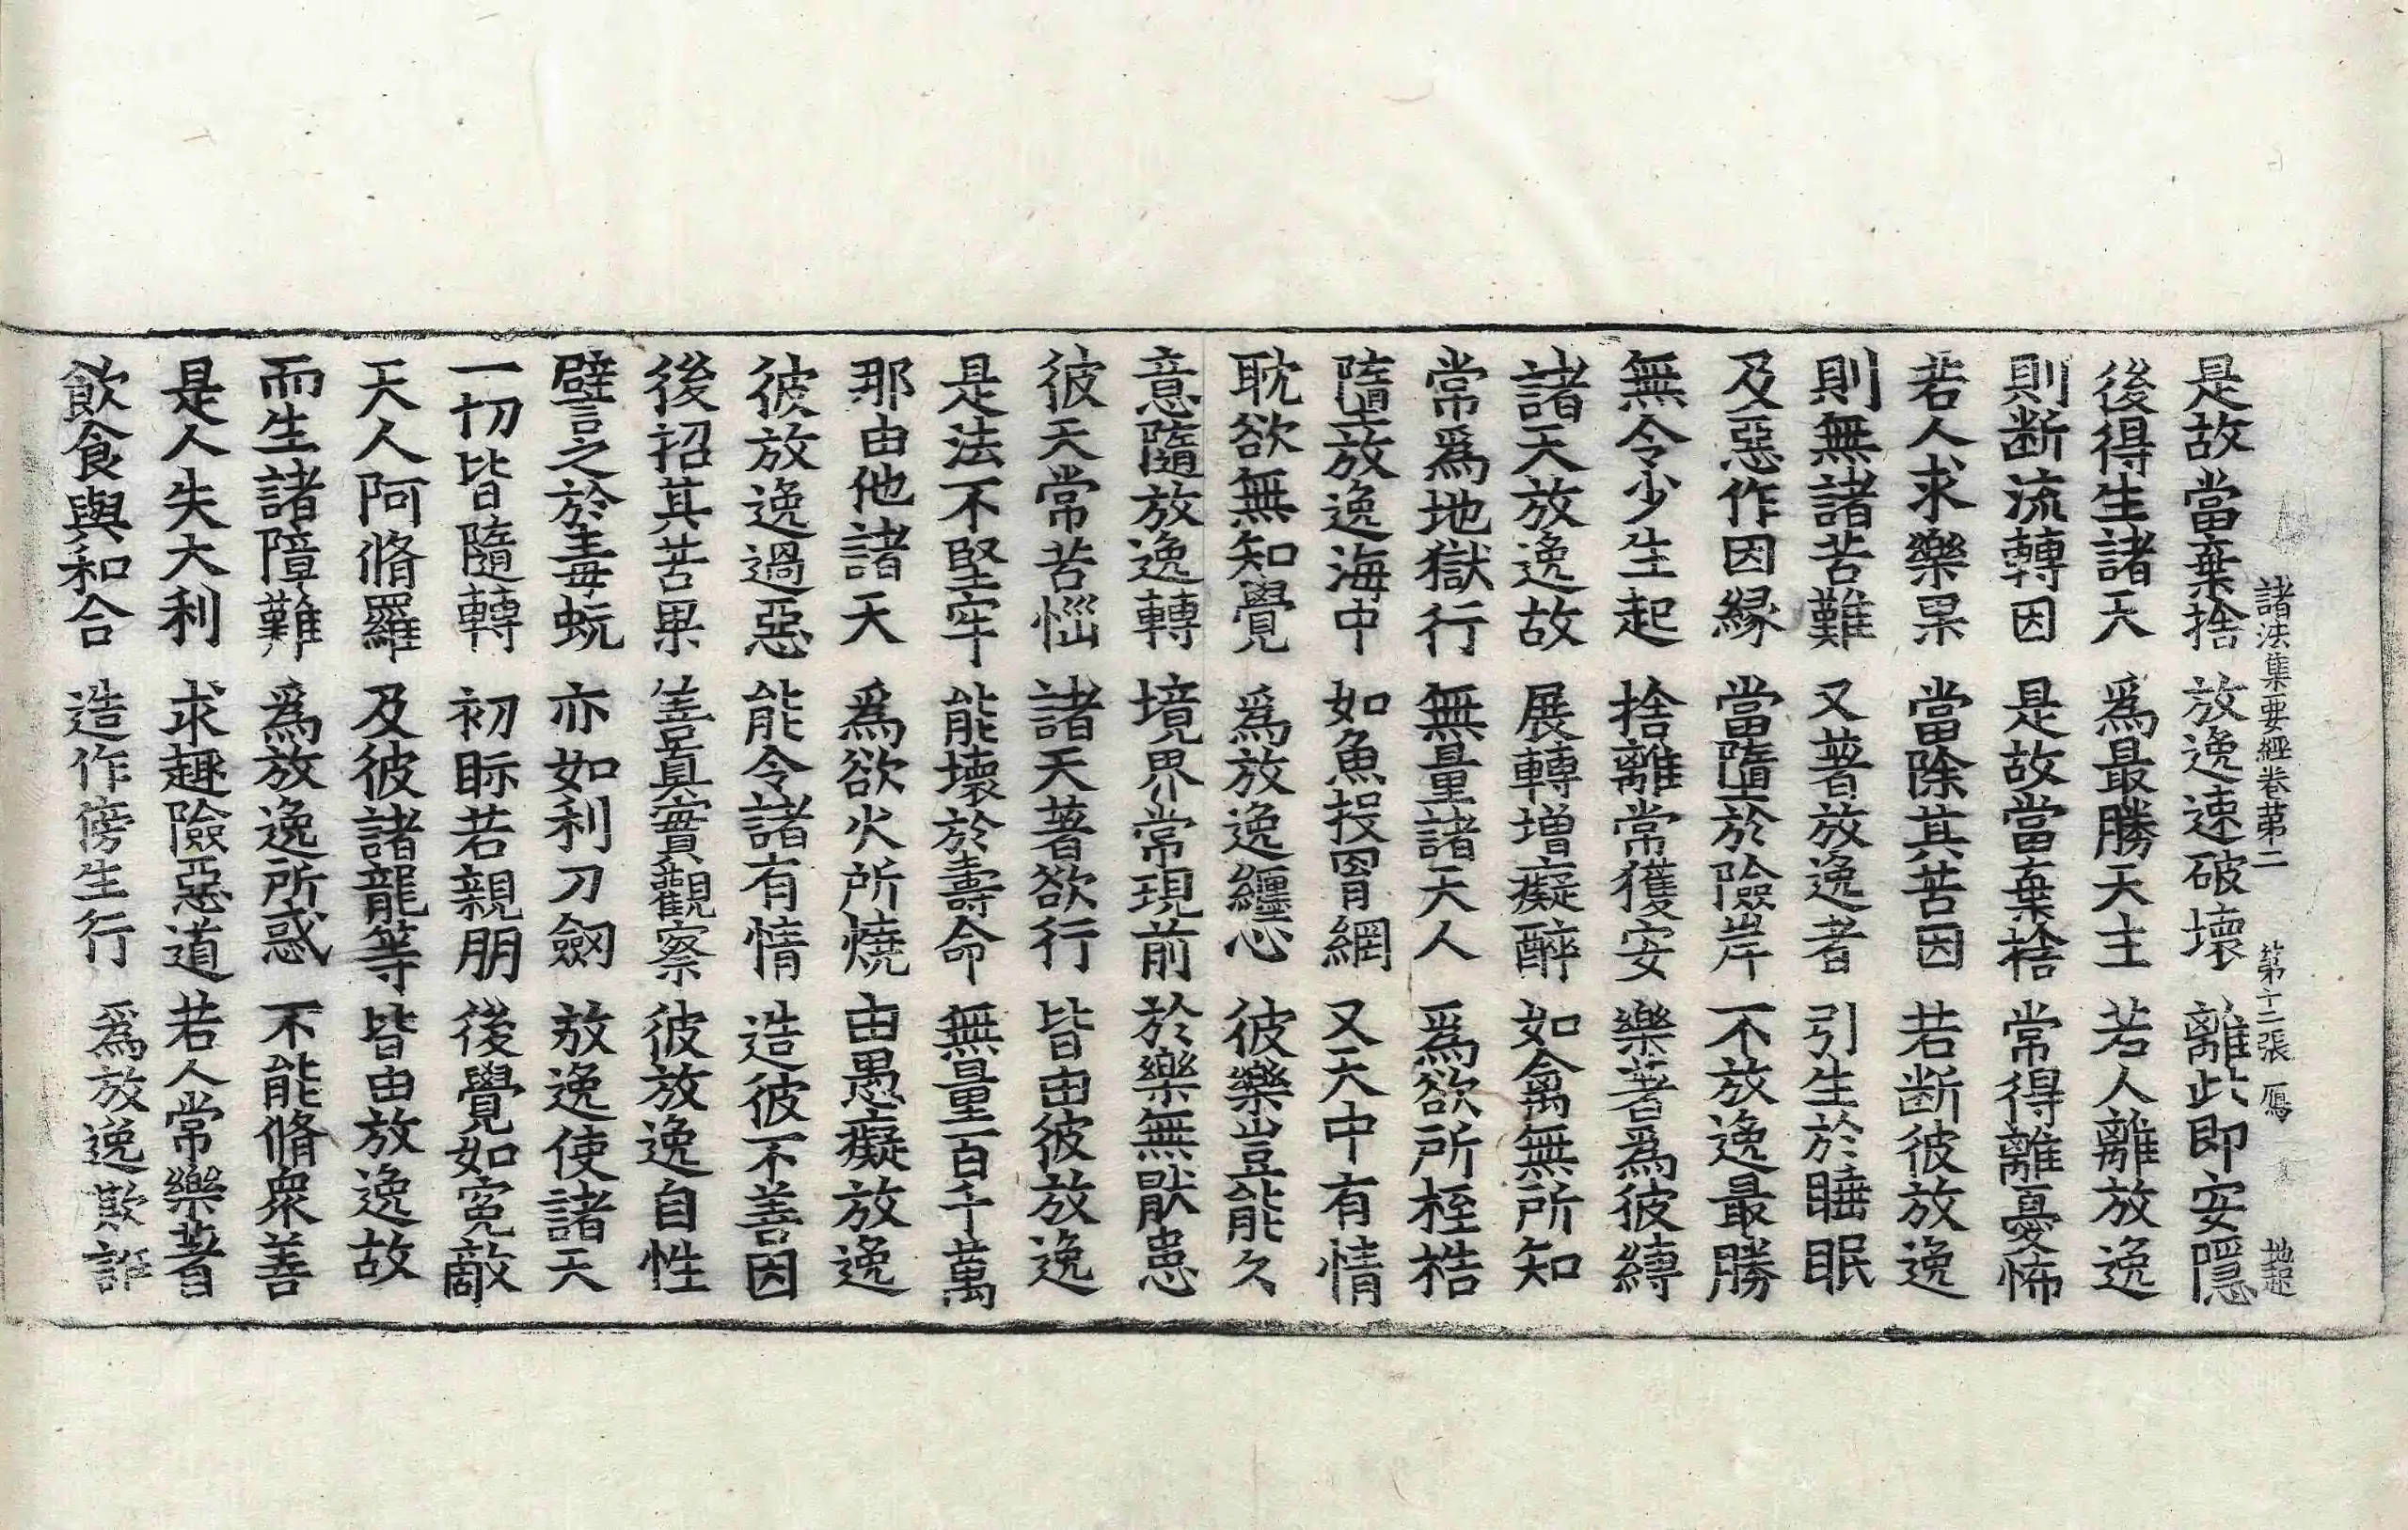 諸法集要經卷第二 第十二張 鴈 地起
是故當棄捨 放逸速破壞 離此即安隱
後得生諸天 爲最勝天主 若人離放逸
則断流轉因 是故當棄捨 常得離憂怖
若人求樂果 當除其苦因 若断彼放逸
則無諸苦難 又著放逸者 引生於睡眠
及惡作因縁 當墮於險岸 不放逸最勝
無令少生起 捨離常獲安 樂著爲彼縛
諸天放逸故 展轉增癡醉 如禽無所知
常爲地獄行 無量諸天人 爲欲所桎梏
墮放逸海中 如魚投罥網 又天中有情
耽欲無知覺 爲放逸纏心 彼樂豈能久
意隨放逸轉 境界常現前 於樂無猒患
彼天常苦惱 諸天著欲行 皆由彼放逸
是法不堅牢 能壞於壽命 無量百千萬
那由他諸天 爲欲火所燒 由愚癡放逸
彼放逸過惡 能令諸有情 造彼不善因
後招其苦果 善真實觀察 彼放逸自性
譬之於毒蚖 亦如利刀劒 放逸使諸天
一切皆隨轉 初眎若親朋 後覺如寃敵
天人阿脩羅 及彼諸龍等 皆由放逸故
而生諸障難 爲放逸所惑 不能脩衆善
是人失大利 求趣險惡道 若人常樂著
飲食與和合 造作傍生行 爲放逸欺誑